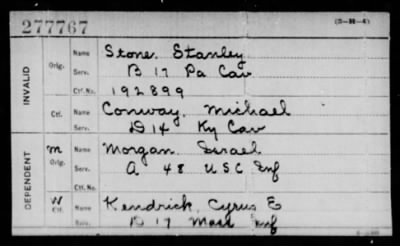 277767 (3-H-4)
INVALID
Orig. Name Stone, Stanley
Serv. B 17 Pa Cav
Ctf. No. 192899
Ctf. Name Conway, Michael
Serv. D 14 Ky Cav
DEPENDENT
M Orig. Name Morgan, Israel
Serv. A 48 U S C Inf
Ctf. No.
W Ctf. Name Kendrick, Cyrus E
Serv. D 17 Mass Inf